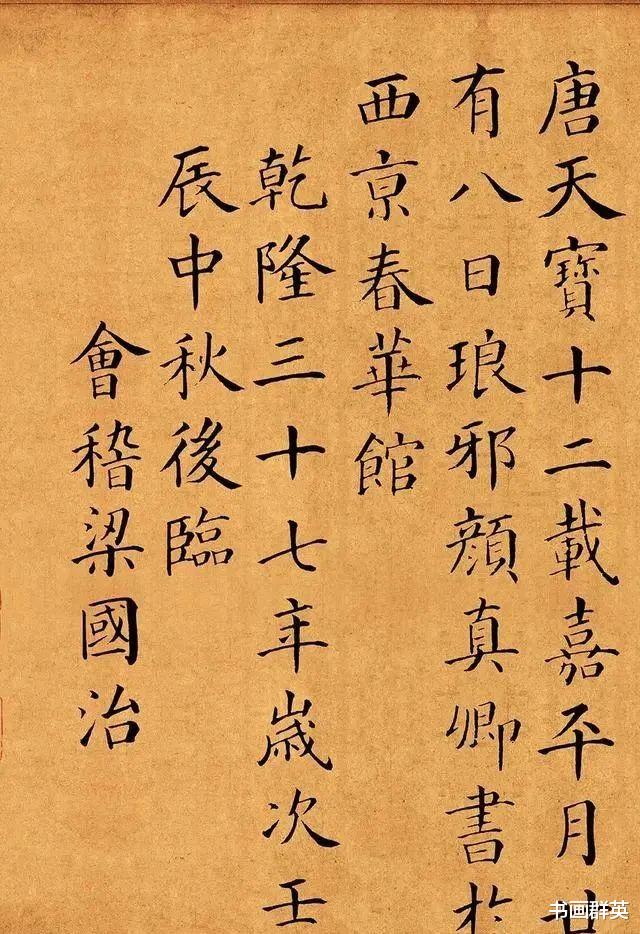 唐天寶十二載嘉平月廿
有八日琅邪顏真卿書於
西京春華館
乾隆三十七年歲次壬
辰中秋後臨
會稽梁國治
书画群英